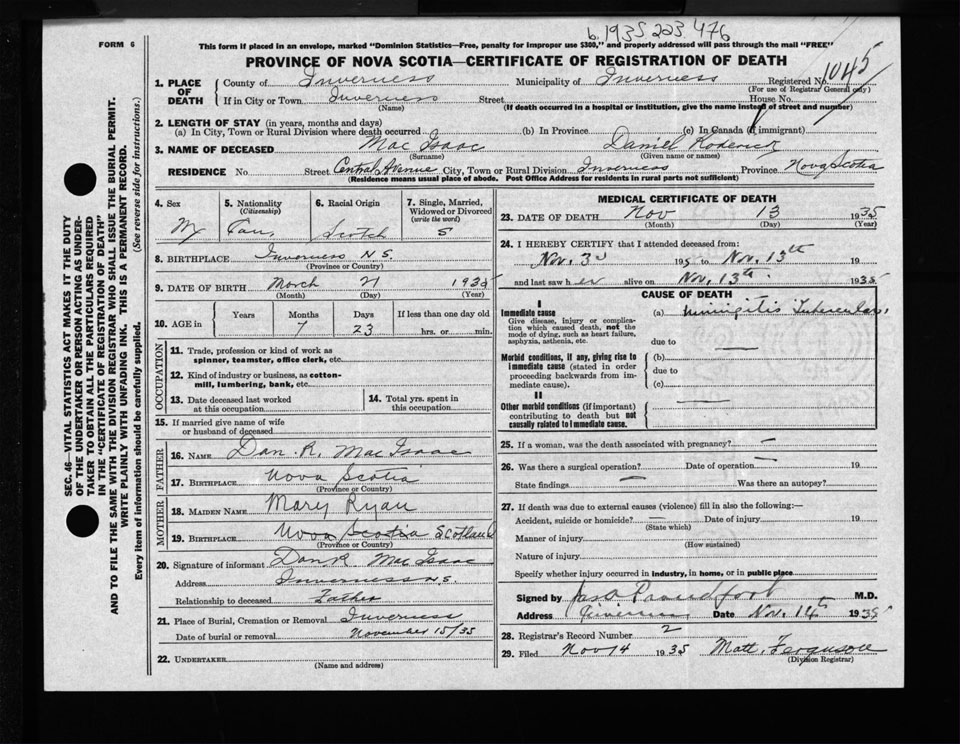 b. 1935 223 476
FORM 6
This form if placed in an envelope, marked "Dominion Statistics—Free, penalty for improper use $300," and properly addressed will pass through the mail "FREE"
PROVINCE OF NOVA SCOTIA—CERTIFICATE OF REGISTRATION OF DEATH
1045
1. PLACE OF DEATH
County of Inverness Municipality of Inverness Registered No.
(For use of Registrar General only)
If in City or Town Inverness Street House No.
(Name) (If death occurred in a hospital or institution, give the name instead of street and number)
2. LENGTH OF STAY (in years, months and days)
(a) In City, Town or Rural Division where death occurred (b) In Province (c) In Canada (if immigrant)
3. NAME OF DECEASED Mac Isaac Daniel Roderick
(Surname) (Given name or names)
RESIDENCE No. Street Central Avenue City, Town or Rural Division Inverness Province Nova Scotia
(Residence means usual place of abode. Post Office Address for residents in rural parts not sufficient)
4. Sex M
5. Nationality (Citizenship) Can.
6. Racial Origin Scotch
7. Single, Married, Widowed or Divorced (write the word) S
8. BIRTHPLACE Inverness N S.
(Province or Country)
9. DATE OF BIRTH March 21 1935
(Month) (Day) (Year)
10. AGE in Years Months Days If less than one day old
7 23 hrs. or min.
OCCUPATION
11. Trade, profession or kind of work as spinner, teamster, office clerk, etc.
12. Kind of industry or business, as cotton-mill, lumbering, bank, etc.
13. Date deceased last worked at this occupation
14. Total yrs. spent in this occupation
15. If married give name of wife or husband of deceased
FATHER
16. NAME Dan. R. Mac Isaac
17. BIRTHPLACE Nova Scotia
(Province or Country)
MOTHER
18. MAIDEN NAME Mary Ryan
19. BIRTHPLACE Nova Scotia Scotland
(Province or Country)
20. Signature of informant Dan R Mac Isaac
Address Inverness N S.
Relationship to deceased Father
21. Place of Burial, Cremation or Removal Inverness
Date of burial or removal November 15/35
22. UNDERTAKER
(Name and address)
MEDICAL CERTIFICATE OF DEATH
23. DATE OF DEATH Nov 13 1935
(Month) (Day) (Year)
24. I HEREBY CERTIFY that I attended deceased from:
Nov. 3 193 to Nov. 13th 19
and last saw h alive on Nov. 13th. 1935
CAUSE OF DEATH
I
Immediate cause
Give disease, injury or complication which caused death, not the mode of dying, such as heart failure, asphyxia, asthenia, etc.
(a) Tubercular
due to
Morbid conditions, if any, giving rise to immediate cause (stated in order proceeding backwards from immediate cause).
(b)
due to
(c)
II
Other morbid conditions (if important) contributing to death but not causally related to immediate cause.
25. If a woman, was the death associated with pregnancy? —
26. Was there a surgical operation? — Date of operation — 19
State findings — Was there an autopsy?
27. If death was due to external causes (violence) fill in also the following:—
Accident, suicide or homicide? — Date of injury 19
(State which)
Manner of injury
(How sustained)
Nature of injury
Specify whether injury occurred in industry, in home, or in public place
Signed by M.D.
Address Date Nov. 14 1935
28. Registrar's Record Number 2
29. Filed Nov 14 1935 Matt. Ferguson
(Division Registrar)
SEC. 46—VITAL STATISTICS ACT MAKES IT THE DUTY
OF THE UNDERTAKER OR PERSON ACTING AS UNDER-
TAKER TO OBTAIN ALL THE PARTICULARS REQUIRED
IN THE "CERTIFICATE OF REGISTRATION OF DEATH"
AND TO FILE THE SAME WITH THE DIVISION REGISTRAR WHO SHALL ISSUE THE BURIAL PERMIT.
WRITE PLAINLY WITH UNFADING INK. THIS IS A PERMANENT RECORD.
Every item of information should be carefully supplied. (See reverse side for instructions.)